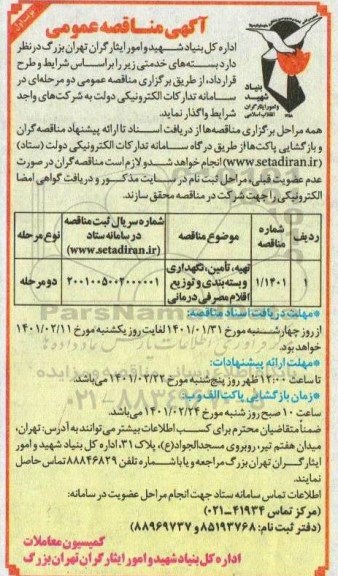 آگهی مناقصه عمومی
نوبت اول
بنیاد
شهید
و امور ایثارگران
انقلاب اسلامی
اداره کل بنیاد شهید و امور ایثارگران تهران بزرگ در نظر
دارد بسته‌های خدمتی زیر را براساس شرایط و طرح
قرارداد، از طریق برگزاری مناقصه عمومی دو مرحله‌ای در
سامانه تدارکات الکترونیکی دولت به شرکت‌های واجد
شرایط واگذار نماید.
همه مراحل برگزاری مناقصه‌ها از دریافت اسناد تا ارائه پیشنهاد مناقصه‌گران
و بازگشایی پاکت‌ها از طریق درگاه سامانه تدارکات الکترونیکی دولت (ستاد)
(www.setadiran.ir) انجام خواهد شد و لازم است مناقصه‌گران در صورت
عدم عضویت قبلی، مراحل ثبت نام در سایت مذکور و دریافت گواهی امضا
الکترونیکی را جهت شرکت در مناقصه محقق سازند.
ردیف | شماره مناقصه | موضوع مناقصه | شماره سریال ثبت مناقصه در سامانه ستاد (www.setadiran.ir) | نوع مرحله
۱ | ۱/۱۴۰۱ | تهیه، تأمین، نگهداری و بسته‌بندی و توزیع اقلام مصرفی درمانی | ۲۰۰۱۰۰۵۰۰۲۰۰۰۰۰۱ | دو مرحله
*مهلت دریافت اسناد مناقصه:
از روز چهارشنبه مورخ ۱۴۰۱/۰۱/۳۱ لغایت روز یکشنبه مورخ ۱۴۰۱/۰۲/۱۱
خواهد بود.
*مهلت ارائه پیشنهادات:
تا ساعت ۱۲:۰۰ ظهر روز پنج‌شنبه مورخ ۱۴۰۱/۰۲/۲۲ می‌باشد.
*زمان بازگشایی پاکت الف و ب:
ساعت ۱۰ صبح روز شنبه مورخ ۱۴۰۱/۰۲/۲۴ می‌باشد.
ضمناً متقاضیان محترم برای کسب اطلاعات بیشتر می‌توانند به آدرس: تهران،
میدان هفتم تیر، روبروی مسجدالجواد(ع)، پلاک ۳۱، اداره کل بنیاد شهید و امور
ایثارگران تهران بزرگ مراجعه و یا با شماره تلفن ۸۸۸۴۶۸۲۹ تماس حاصل
نمایند.
اطلاعات تماس سامانه ستاد جهت انجام مراحل عضویت در سامانه:
(مرکز تماس ۴۱۹۳۴-۰۲۱)
(دفتر ثبت نام: ۸۵۱۹۳۷۶۸ و ۸۸۹۶۹۷۳۷)
کمیسیون معاملات
اداره کل بنیاد شهید و امور ایثارگران تهران بزرگ